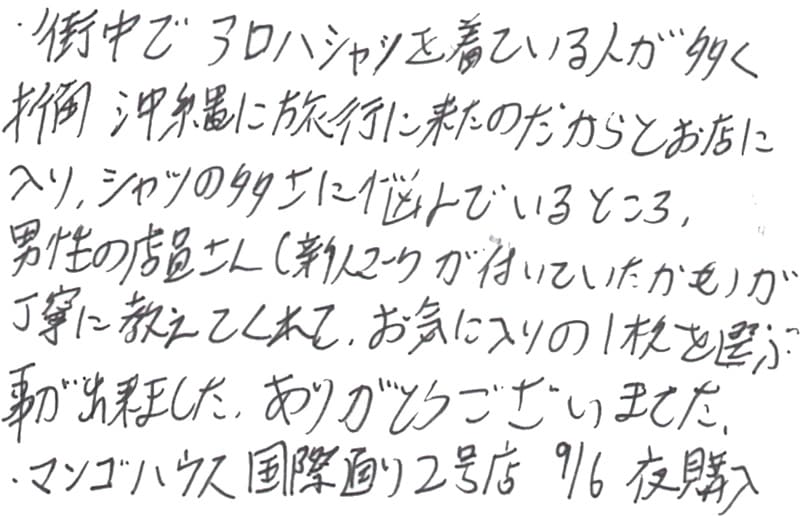 ・街中でアロハシャツを着ている人が多く
折角 沖縄に旅行に来たのだからとお店に
入り、シャツの多さに悩んでいるところ、
男性の店員さん(新人マークが付いていたかも)が
丁寧に教えてくれて、お気に入りの1枚を選ぶ
事が出来ました。ありがとうございました。
・マンゴハウス国際通り2号店 9/6 夜購入